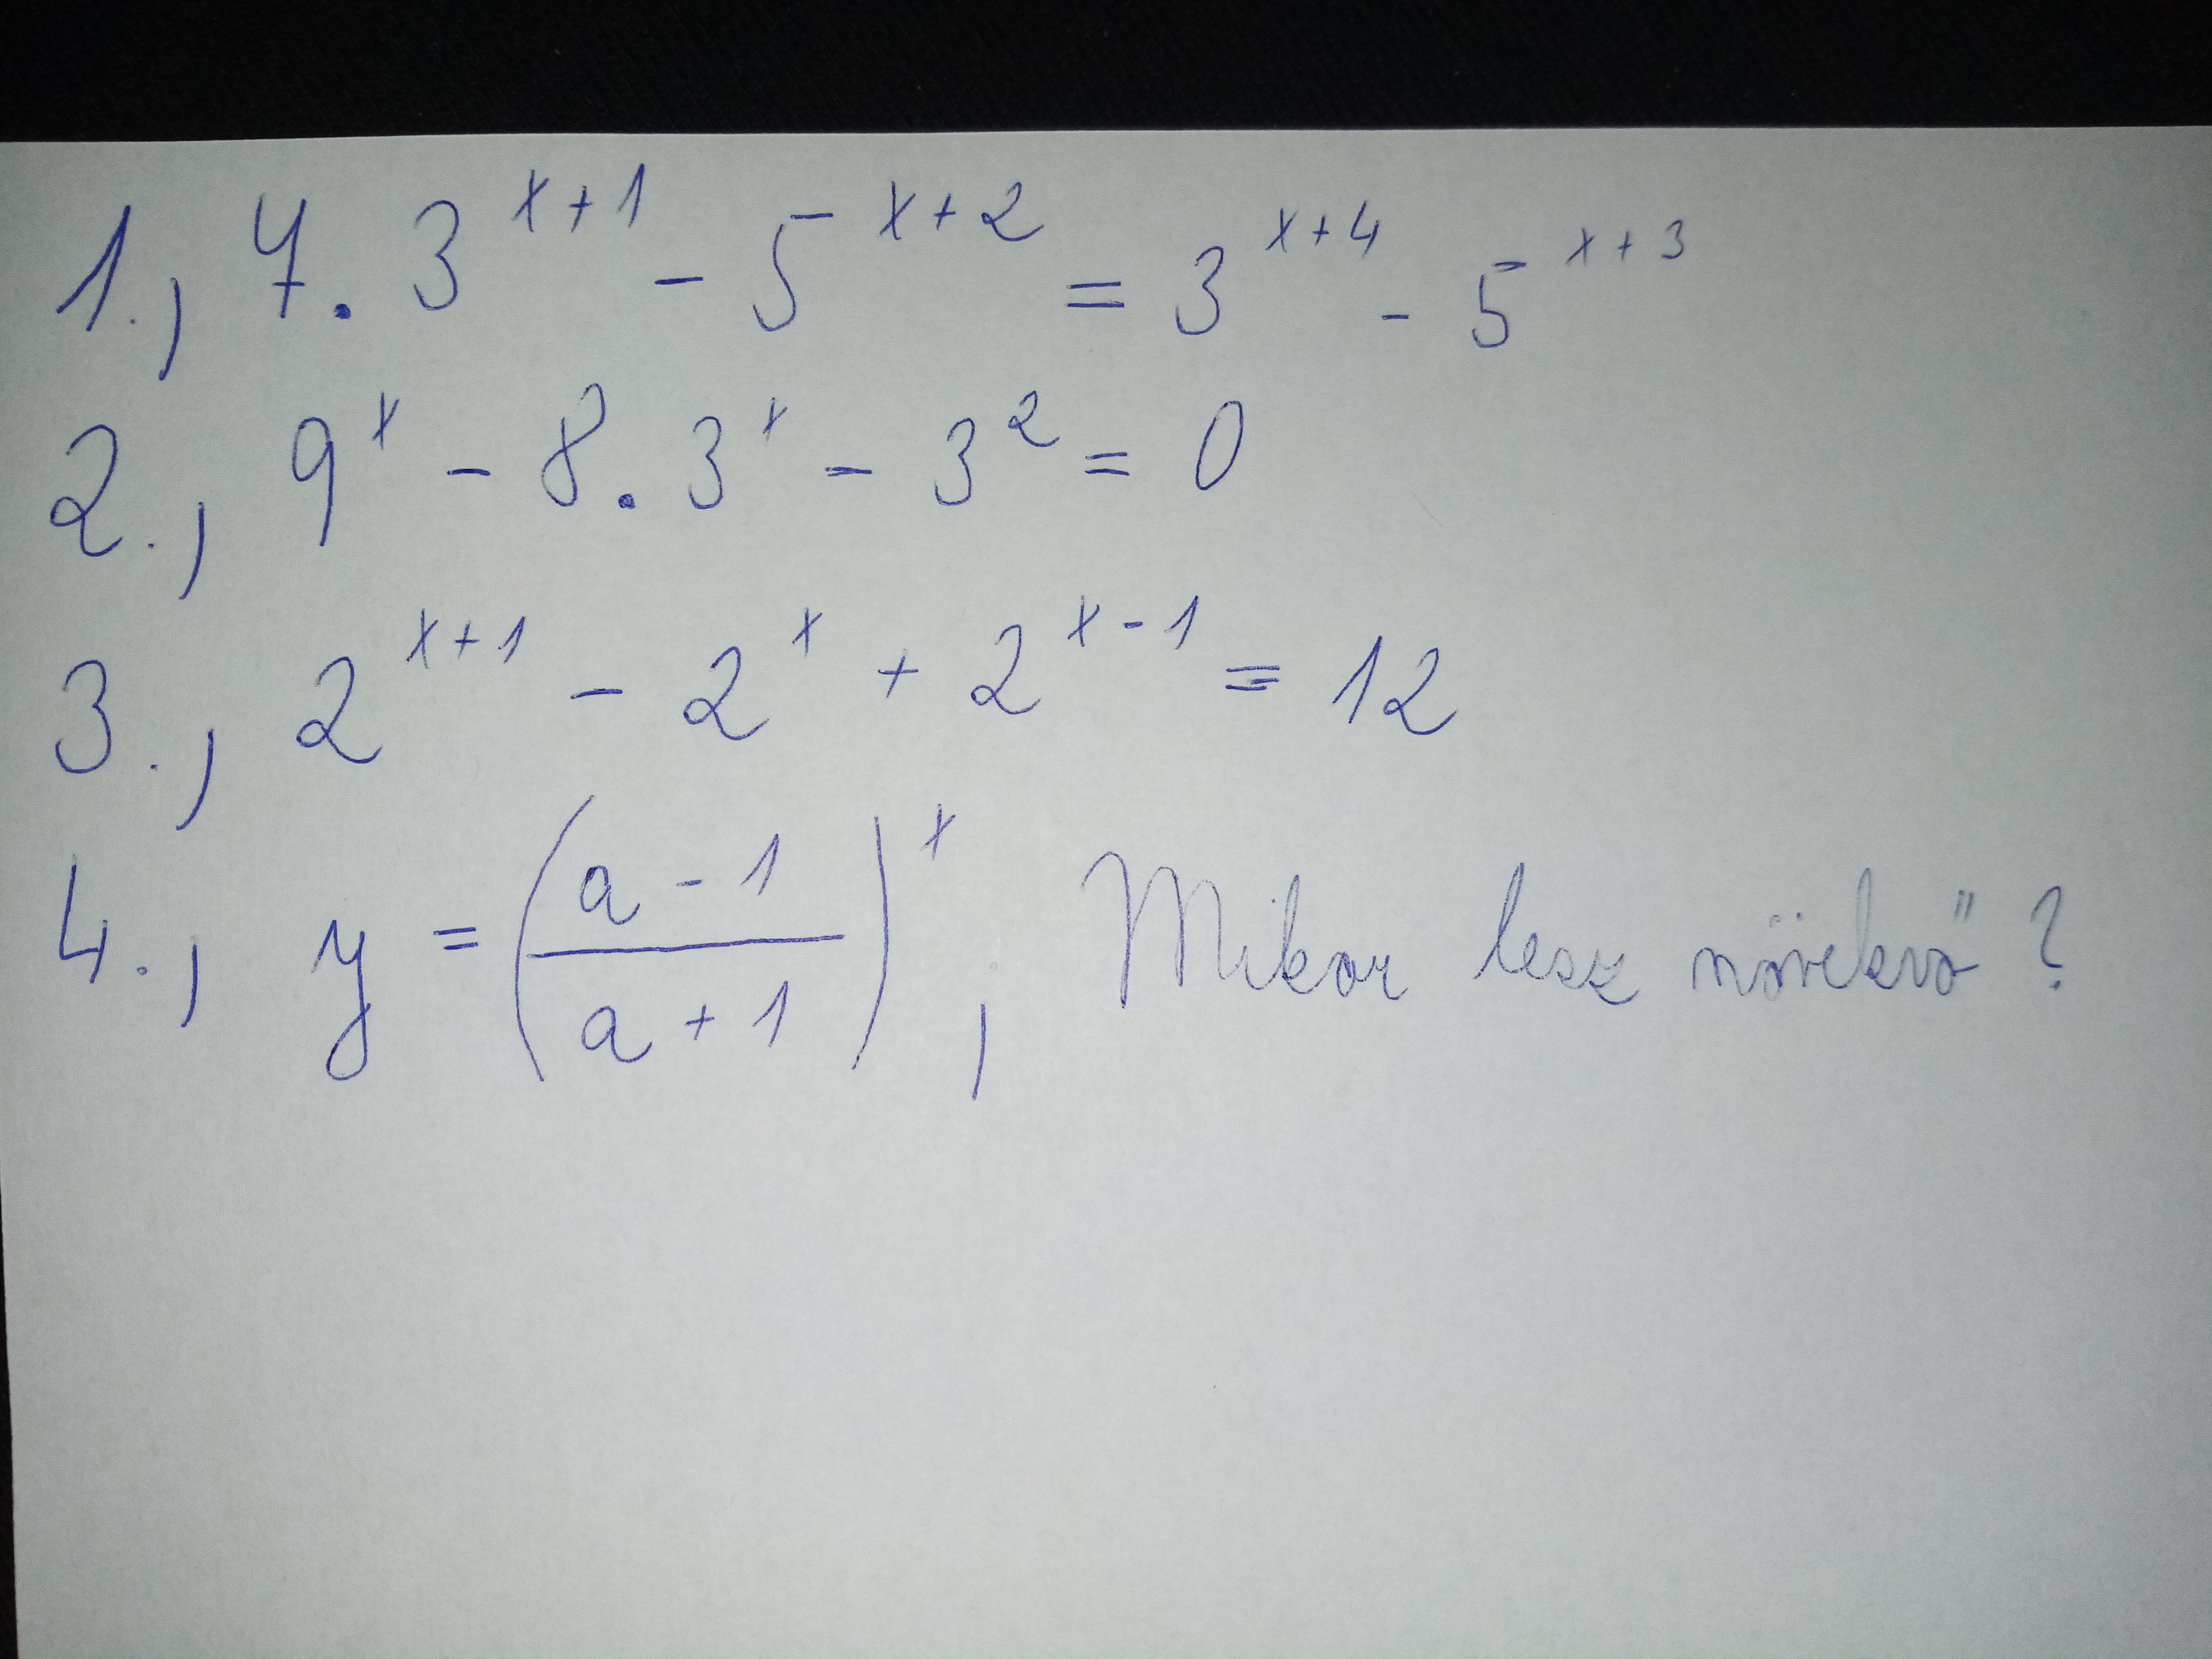 1., 7 · 3^{x+1} - 5^{x+2} = 3^{x+4} - 5^{x+3}
2., 9^x - 8 · 3^x - 3^2 = 0
3., 2^{x+1} - 2^x + 2^{x-1} = 12
4., y = ((a-1)/(a+1))^x, Mikor lesz növekvő?